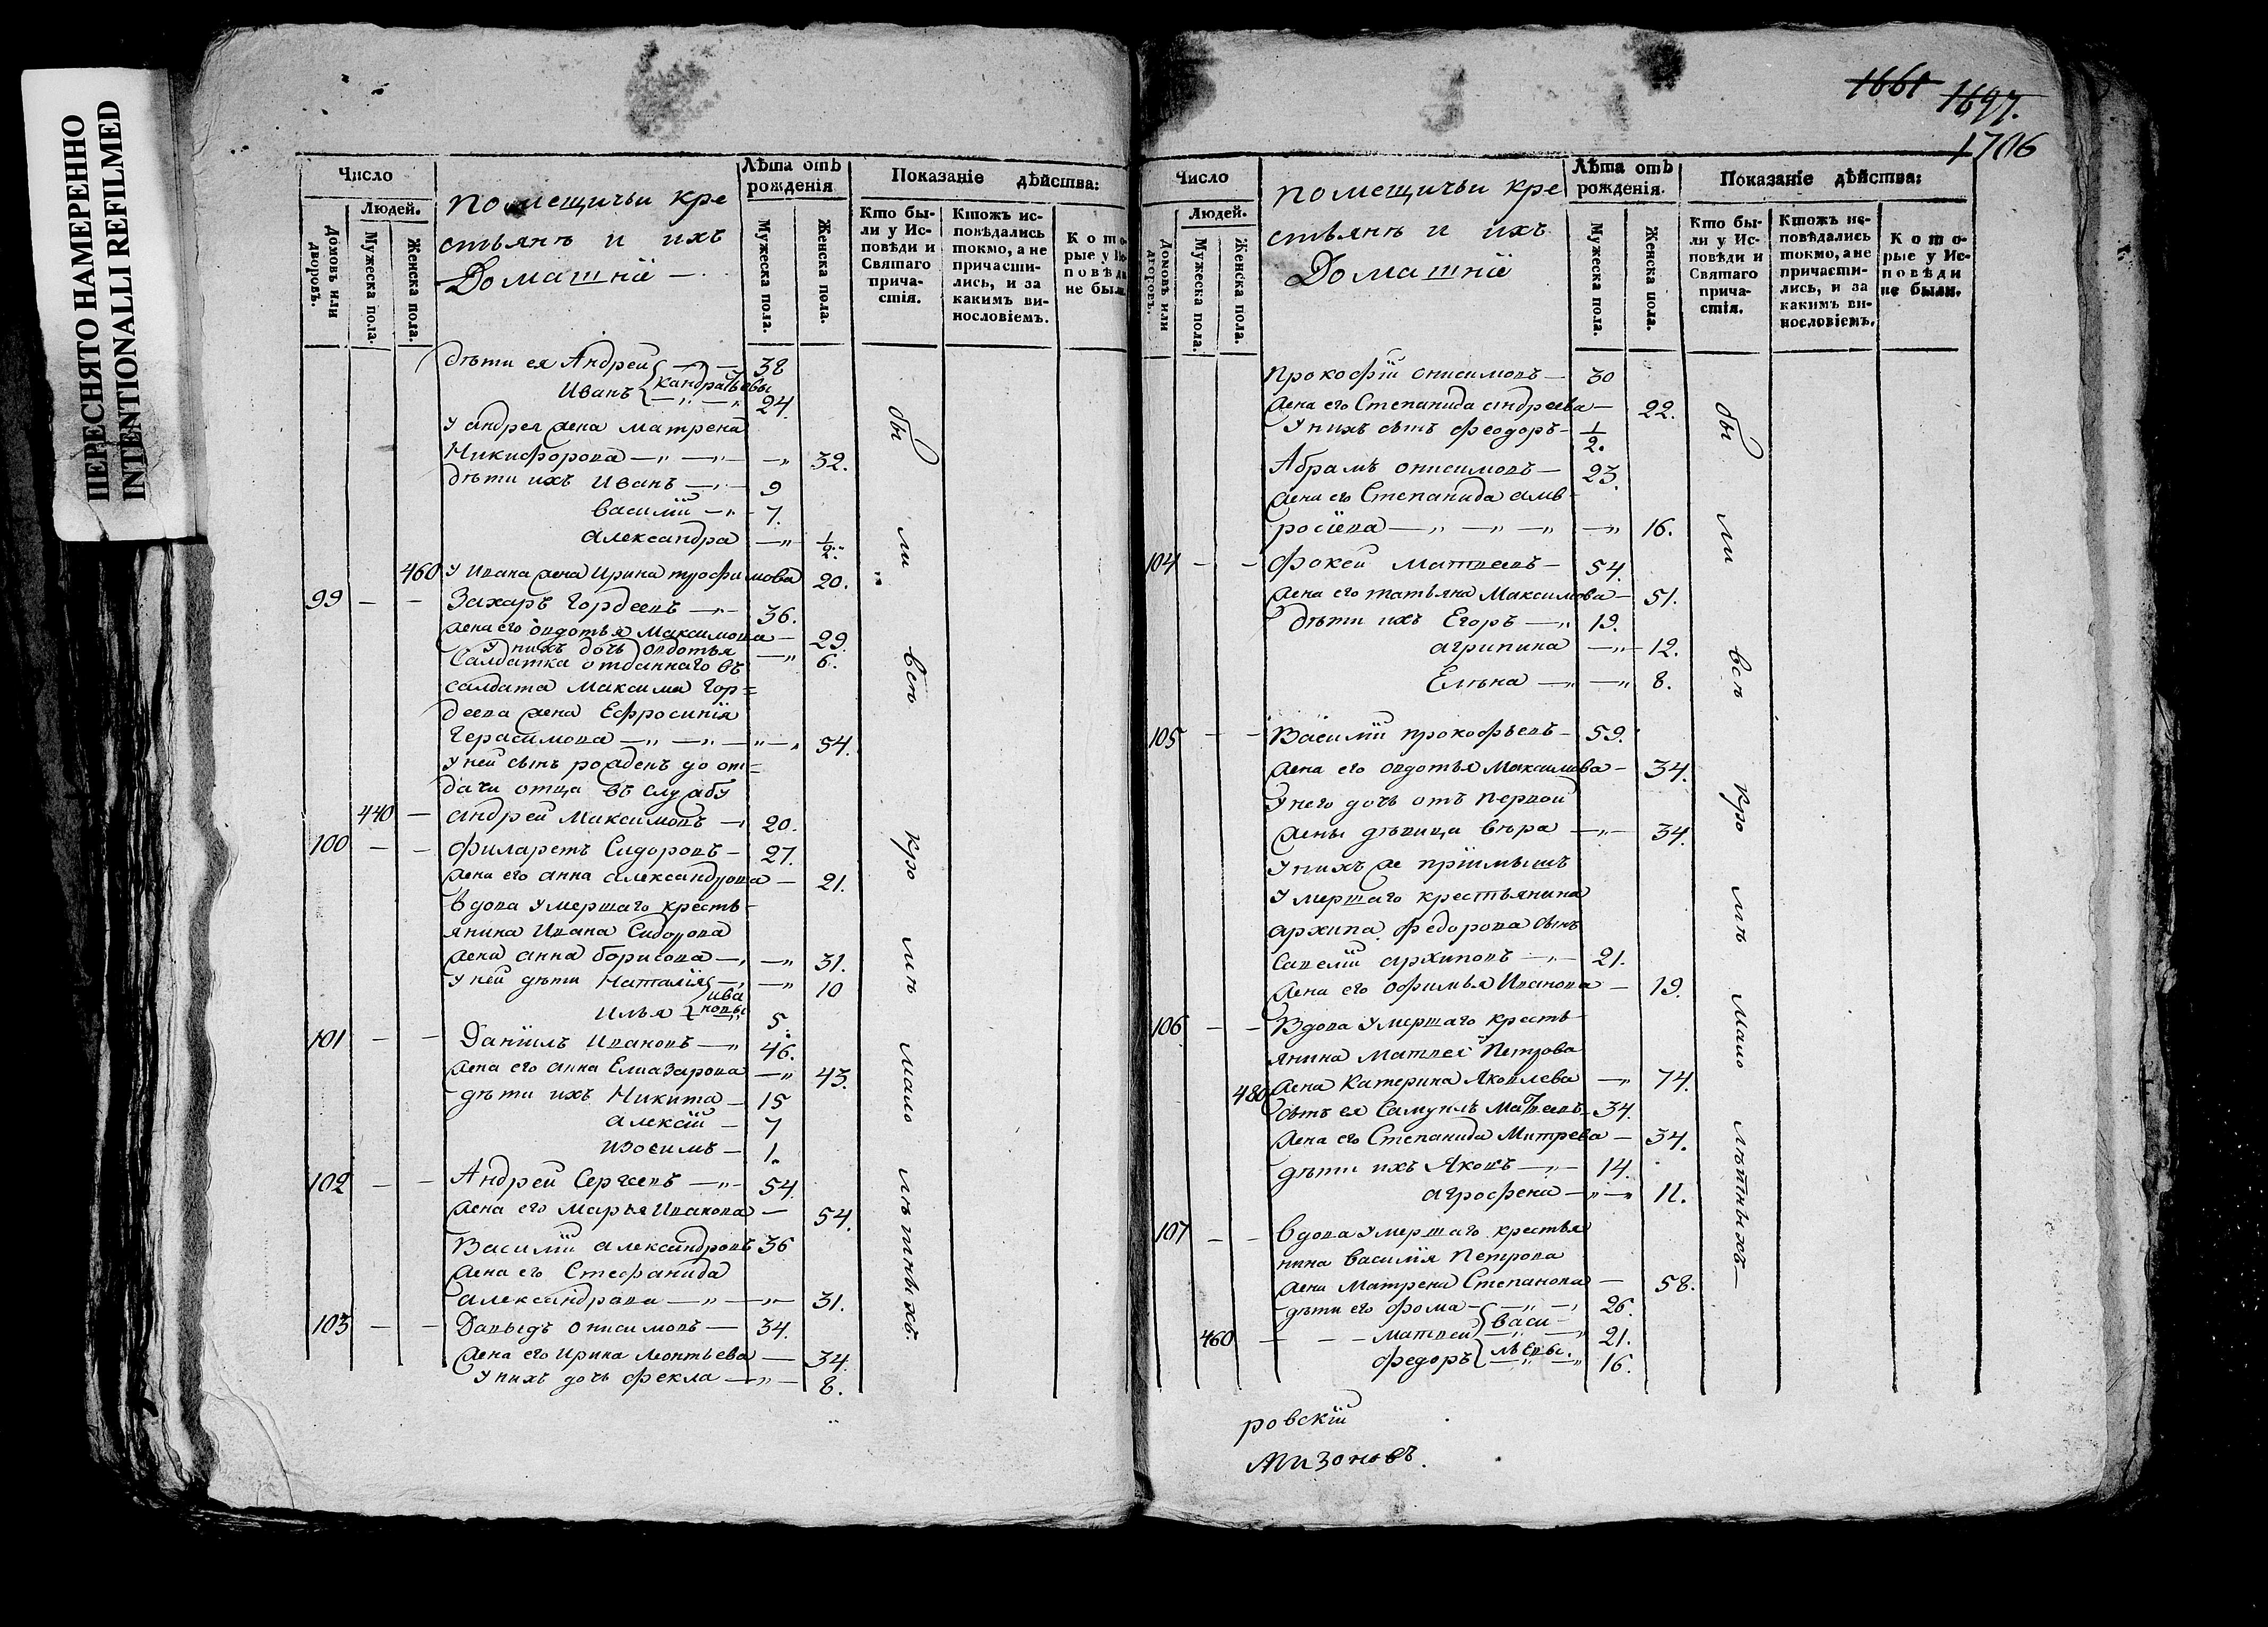 ПЕРЕСНЯТО НАМЕРЕННО
INTENTIONALLI REFILMED
Число
Людей.
Домовъ или дворовъ.
Мужеска пола.
Женска пола.
помещичьи кре
стьянъ и ихъ
Домашнiе
Лѣта отъ рожденiя
Мужеска пола.
Женска пола.
Показанiе дѣйства:
Кто бы-
ли у Ис-
повѣди и
Святаго
прича-
стiя.
Ктожъ ис-
повѣдались
токмо, а не
причасти-
лись, и за
какимъ ви-
нословiемъ.
Кото-
рые у Ис-
повѣди
не были
дѣти ея Андрей 38
Иванъ кандратьевы 24.
У андрея жена матрена
Никифорова 32.
дѣти ихъ Иванъ 9
василiй 7.
александра 1/2.
460 У Ивана жена Ирина трофимова 20.
99 Захаръ Гордеевъ 36.
жена его овдотья Максимова 29.
У нихъ дочь овдотья 6.
Салдатка отданнаго въ
салдата Максима Гор=
деева жена Ефросинiя
Герасимова 54.
у ней сынъ рожденъ до от=
дачи отца въ службу
440 андрей Максимовъ 20.
100 Филаретъ Сидоровъ 27.
жена его анна александрова 21.
вдова умершаго кресть-
янина Ивана Сидорова
жена анна борисова 31.
у ней дѣти Наталiя 10
Илья Ивановы 5.
101 Данiилъ Ивановъ 46.
жена его анна Елиазарова 43.
дѣти ихъ Никита 15
алексiй 7
Изосимъ 1.
102 Андрей Сергеевъ 54.
жена его Марья Иванова 54.
Василiй александровъ 36
жена его Стефанида
александрова 31.
103 Давыдъ онисимовъ 34.
жена его Ирина леонтьева 34.
У нихъ дочь фекла 8.
бы ли всѣ кро мѣ мало лѣтныхъ.
1661 1697.
1706
Число
Людей.
Домовъ или дворовъ.
Мужеска пола.
Женска пола.
помещичьи кре
стьянъ и ихъ
Домашнiе
Лѣта отъ рожденiя.
Мужеска пола.
Женска пола.
Показанiе дѣйства:
Кто бы-
ли у Ис-
повѣди и
Святаго
прича-
стiя.
Ктожъ ис-
повѣдались
токмо, а не
причасти-
лись, и за
какимъ ви-
нословiемъ.
Кото-
рые у Ис-
повѣди
не были.
прокофiй онисимовъ 30
жена его Степанида андреева 22.
У нихъ сынъ феодоръ 1/2.
Абрамъ онисимовъ 23.
жена его Степанида амв-
росiева 16.
104 фокей Матвеевъ 54.
жена его татьяна Максимова 51.
дѣти ихъ Егоръ 19.
агрипина 12.
Елѣна 8.
105 Василiй прокофьевъ 59.
жена его овдотья Максимова 34.
У него дочь отъ первой
жены дѣвица вѣра 34.
У нихъ же прiимышъ
умершаго крестьянина
архипа федорова сынъ
Савелiй архиповъ 21.
жена его офимья Иванова 19.
106 Вдова умершаго кресть-
янина матвея Петрова
480 жена Катерина Яковлева 74.
сынъ ея Самуилъ Матвеевъ 34.
жена его Степанида Митрева 34.
дѣти ихъ Яковъ 14.
агрофена 11.
107 вдова умершаго крестья
нина василiя Петрова
жена Матрена Степанова 58.
дѣти его фома 26.
460 матвей Васи- 21.
федоръ льевы. 16.
бы ли всѣ кро мѣ мало лѣтныхъ
ровскiй
Мизоновъ.